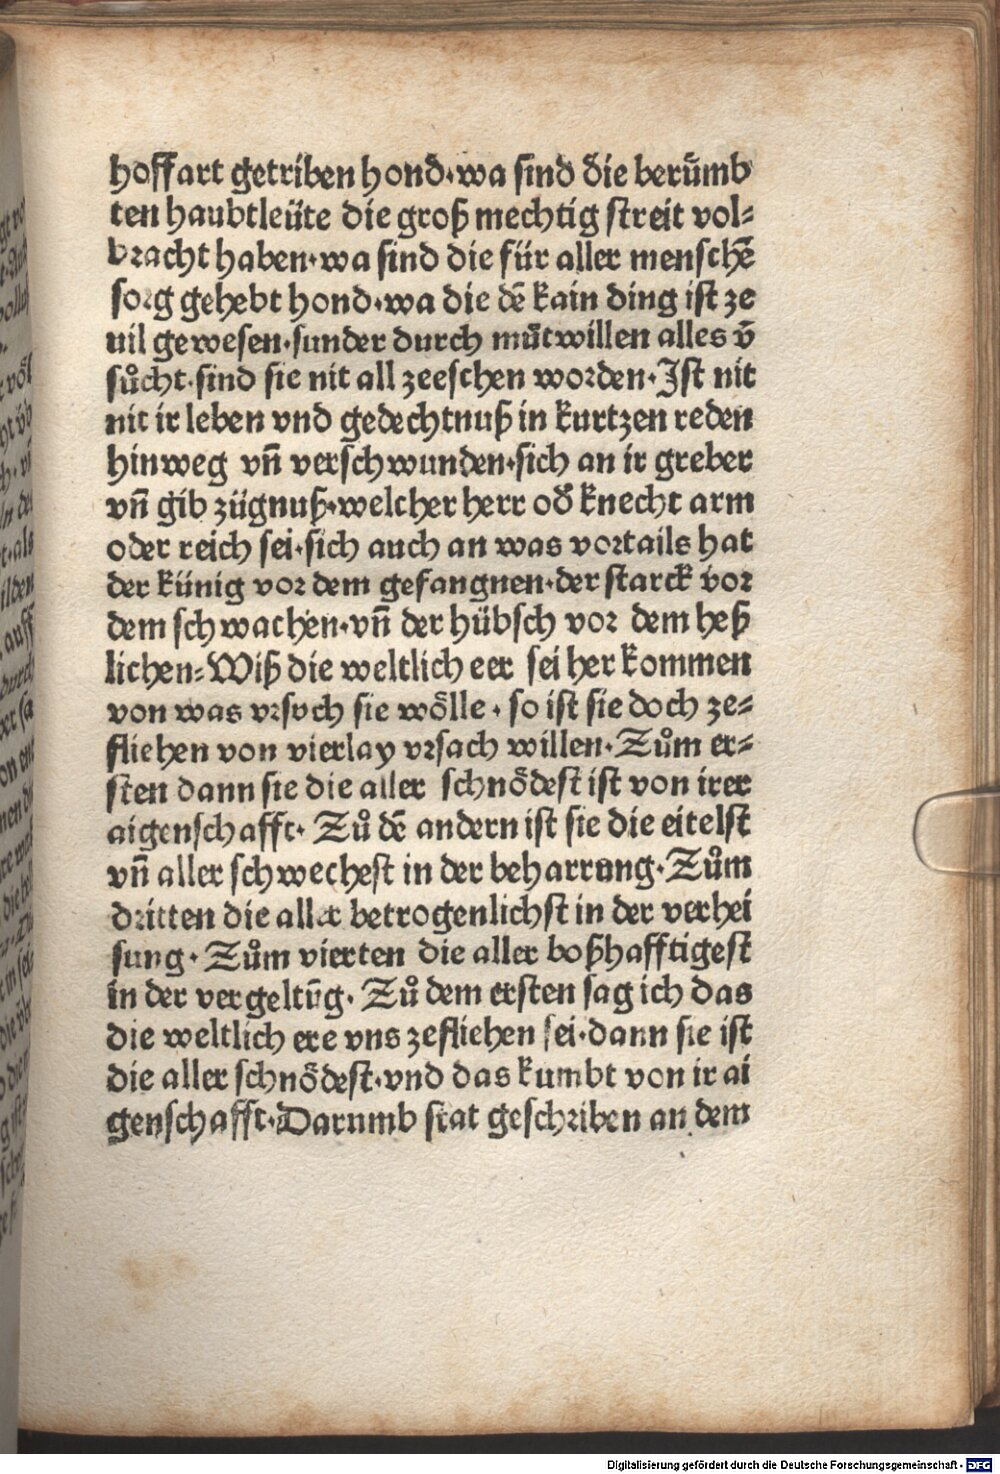 hoffart getriben hond·wa sind die berümb
ten haubtleüte die groß mechtig streit vol⸗
bracht haben·wa sind die für aller menschē
sorg gehebt hond·wa die dē kain ding ist ze
uil gewesen·sunder durch můtwillen alles v̄
sůcht·sind sie nit all zeeschen worden·Ist nit
nit ir leben vnd gedechtnuß in kurtzen reden
hinweg vn̄ verschwunden·sich an ir greber
vn̄ gib zügnuß·welcher herr od̄ knecht arm
oder reich sei·sich auch an was vortails hat
der künig vor dem gefangnen·der starck vor
dem schwachen·vn̄ der hübsch vor dem heß
lichen⸗Wiß die weltlich eer sei her kommen
von was vrsvch sie wölle·so ist sie doch ze⸗
fliehen von vierlay vrsach willen·Zům er⸗
sten dann sie die aller schnödest ist von irer
aigenschafft·Zů dē andern ist sie die eitelst
vn̄ aller schwechest in der beharrung·Zům
dritten die aller betrogenlichst in der verhei
sung·Zům vierten die aller boßhafftigest
in der vergeltūg·Zů dem ersten sag ich das
die weltlich ere vns zefliehen sei·dann sie ist
die aller schnödest·vnd das kumbt von ir ai
genschafft·Darumb stat geschriben an dem
Digitalisierung gefördert durch die Deutsche Forschungsgemeinschaft - DFG